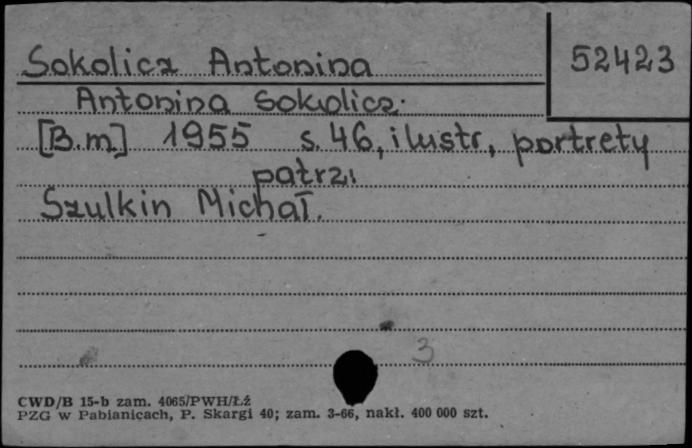 Sokolicz Antonina
52423
Antonina Sokolicz.
[B.m.] 1955 s. 46, ilustr, portrety
patrz:
Szulkin Michał.
3
CWD/B 15-b zam. 4065/PWH/Łź
PZG w Pabianicach, P. Skargi 40; zam. 3-66, nakł. 400 000 szt.